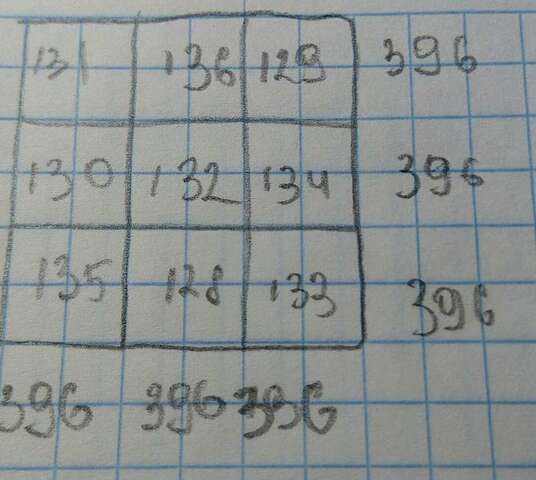 131 136 129 396
130 132 134 396
135 128 133 396
396 396 396